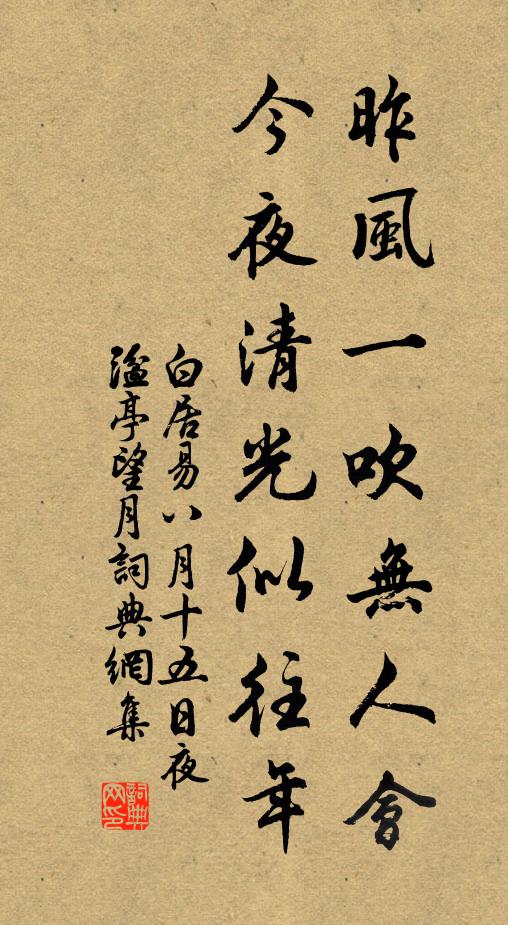 昨風一吹無人會
今夜清光似往年
白居易八月十五日夜
湓亭望月詞典網集
詞典网印